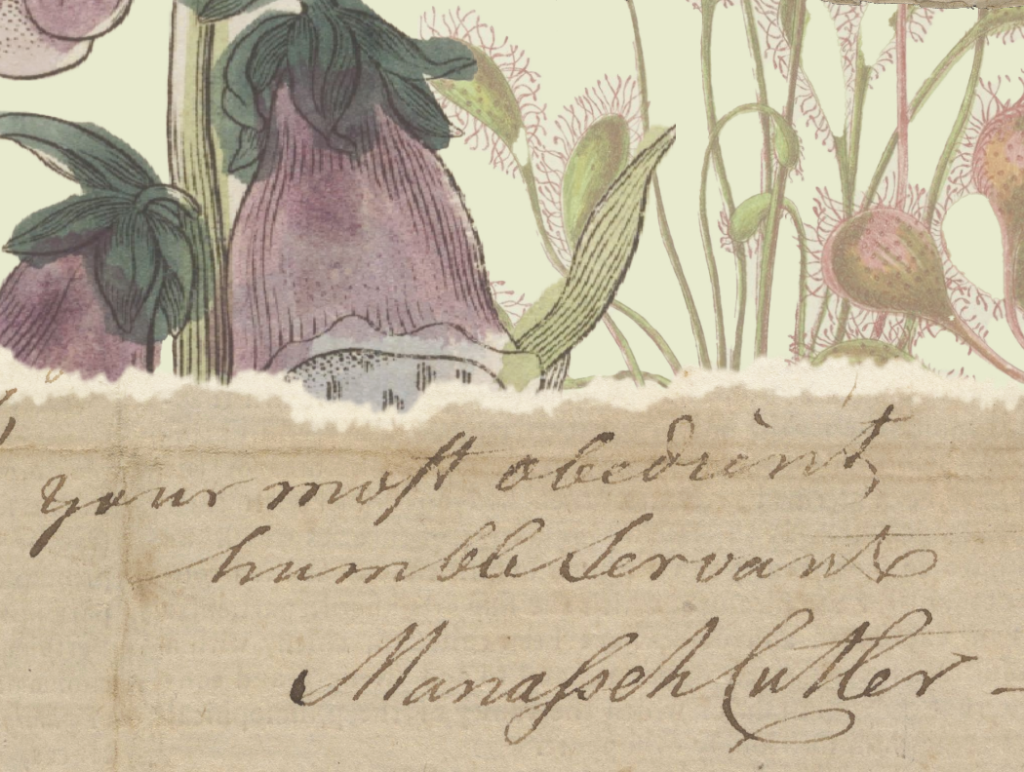 your most obedient
humble Servant
Manasseh Cutler